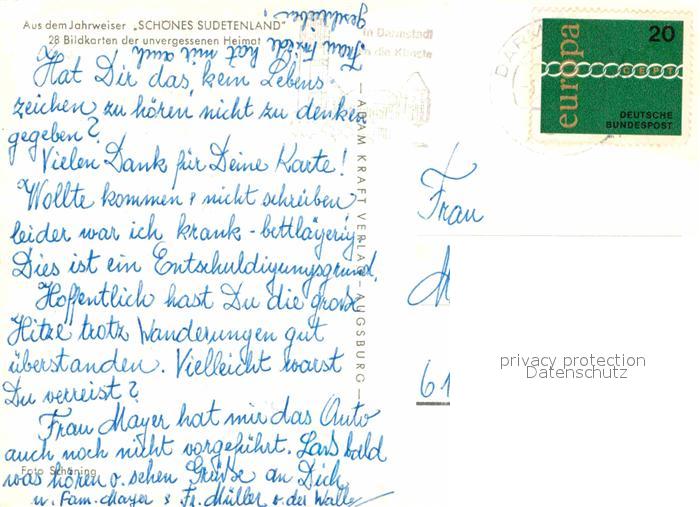 Aus dem Jahrweiser „SCHÖNES SUDETENLAND"
28 Bildkarten der unvergessenen Heimat
Hat Dir das, kein Lebens-
zeichen zu hören, nicht zu denken
gegeben?
Vielen Dank für Deine Karte!
Wollte kommen & nicht schreiben
leider war ich krank - bettlägerig.
Dies ist ein Entschuldigungsgrund.
Hoffentlich hast Du die große
Hitze trotz Wanderungen gut
überstanden. Vielleicht warst
Du verreist?
Frau Mayer hat mir das Auto
auch noch nicht vorgeführt. Lass bald
was hören o. sehen Grüße an Dich,
u. Fam. Mayer & Fr. Müller v. der
Foto Schöning
Frau Friedl hat mir auch
geschrieben!
— ADAM KRAFT VERLAG — AUGSBURG —
in Darmstadt
die Künste
DARM
europa
20
CEPT
DEUTSCHE
BUNDESPOST
Frau
M
61
privacy protection
Datenschutz